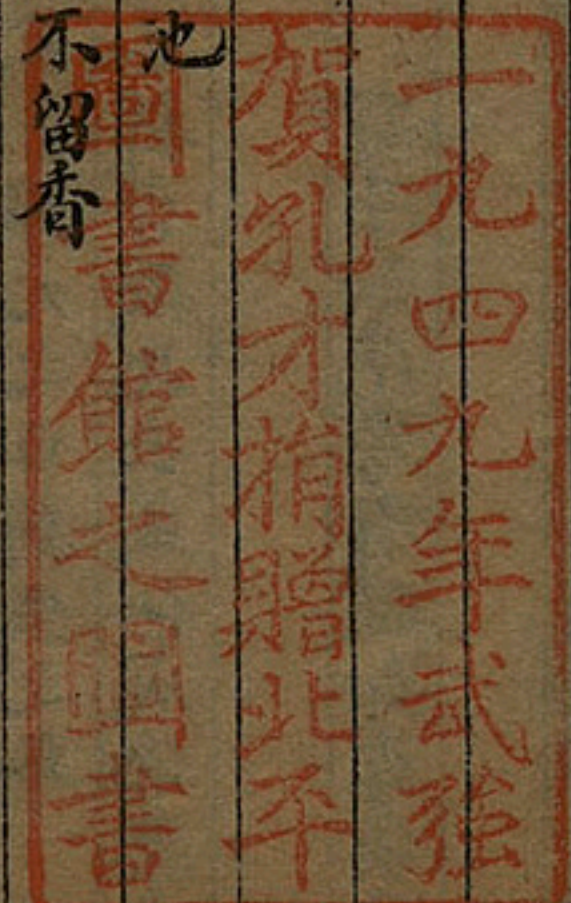 一九四九年武強
賀孔才捐贈北平
圖書館之圖書
池
不留香